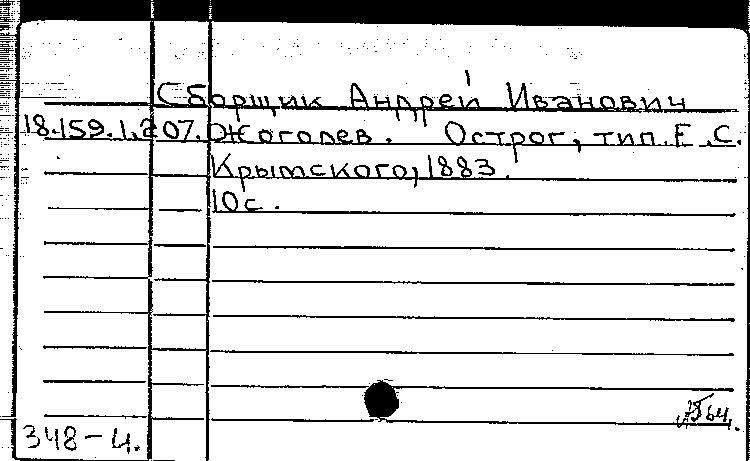 Сборщик Андрей Иванович
18.159.1.207. Жоголев. Острог, тип. Е.С.
Крымского, 1883.
10 с.
348-4.